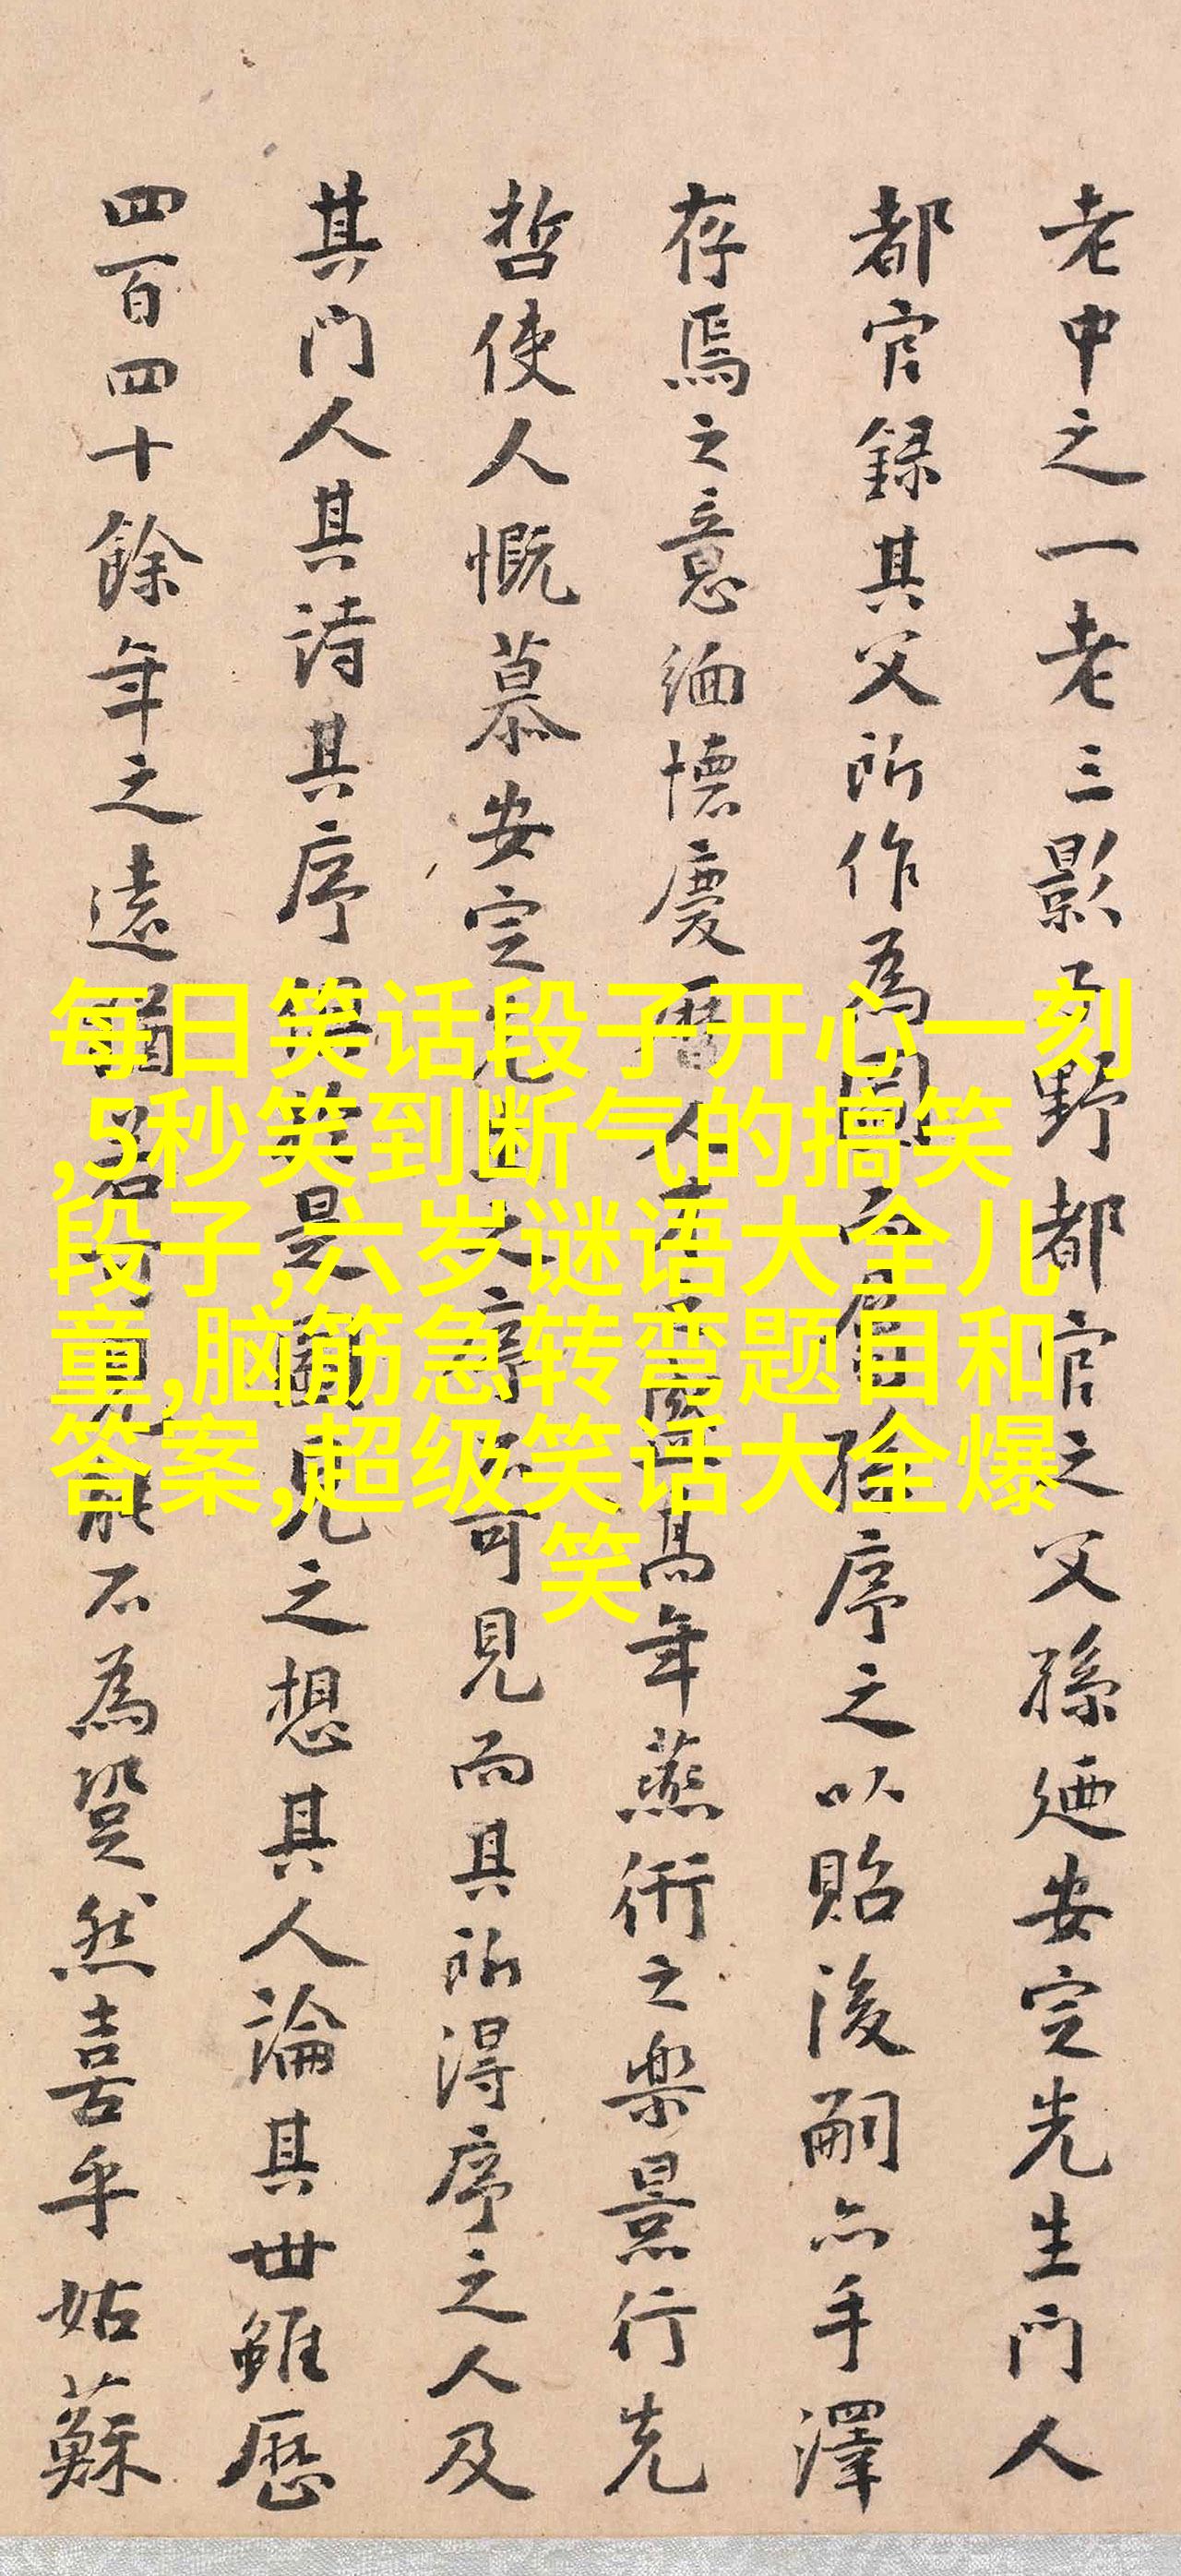 老中之一老三影子野都官之父孫廼安定先生門人
都官録其父所作為圖而屬孫序之以貽後嗣亦手澤
存焉之意緬懷慶曆人高年燕衎之樂景行先
哲使人慨慕安定序不可見而其所得序之人及
其門人其詩其序是圖見之想其人論其世雖歷
四百四十餘年之遠猶若可見能不為跫然喜乎姑蘇
每日笑话段子开心一刻
,5秒笑到断气的搞笑
段子,六岁谜语大全儿
童,脑筋急转弯题目和
答案,超级笑话大全爆
笑